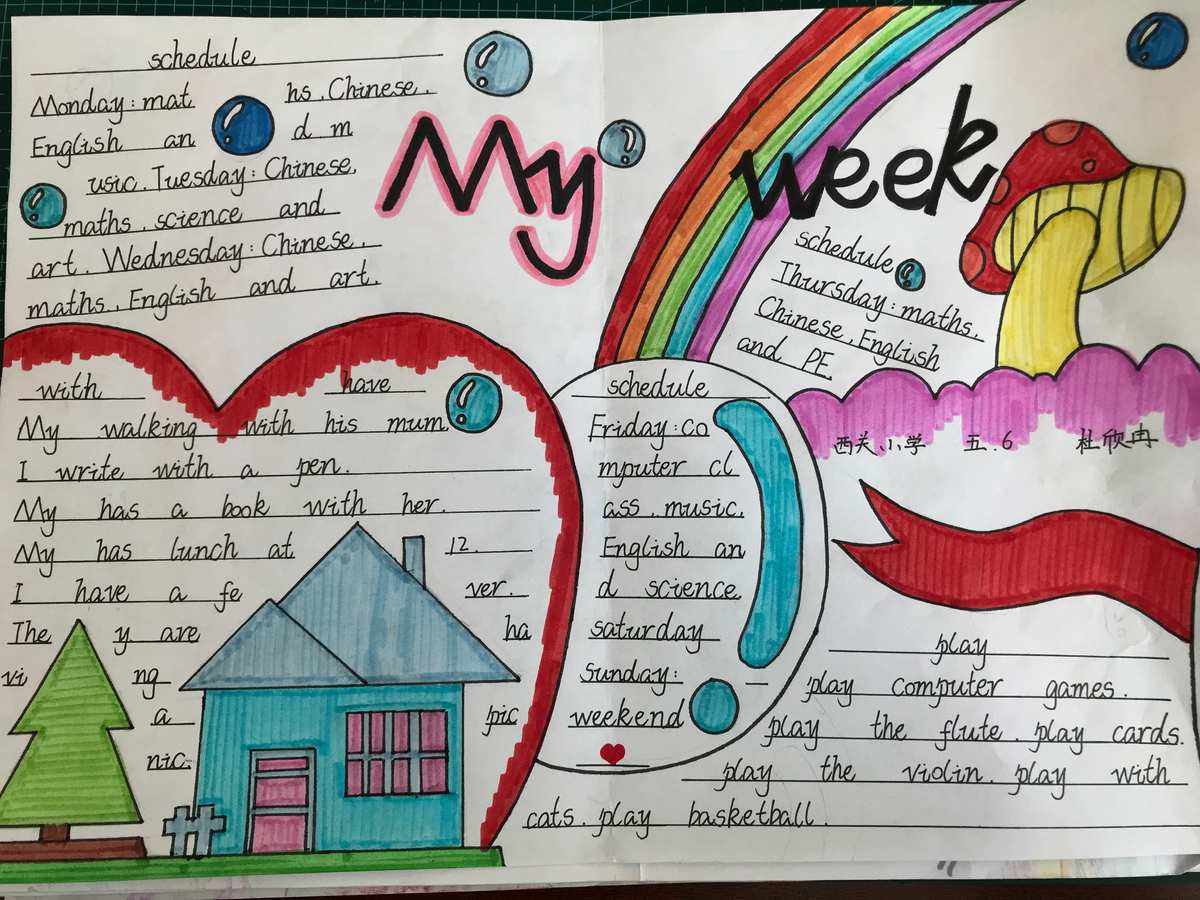 My week
schedule
Monday: mat hs, Chinese,
English an d m
usic. Tuesday: Chinese,
maths, science and
art. Wednesday: Chinese,
maths, English and art.
schedule
Thursday: maths,
Chinese, English
and PE.
with have
My walking with his mum
I write with a pen.
My has a book with her.
My has lunch at 12.
I have a fe ver.
The y are ha
vi ng
a pic
nic.
schedule
Friday: co
mputer cl
ass, music,
English an
d science
saturday
sunday:
weekend
西关小学 五.6 杜欣冉
play
play computer games.
play the flute. play cards.
play the violin. play with
cats. play basketball.